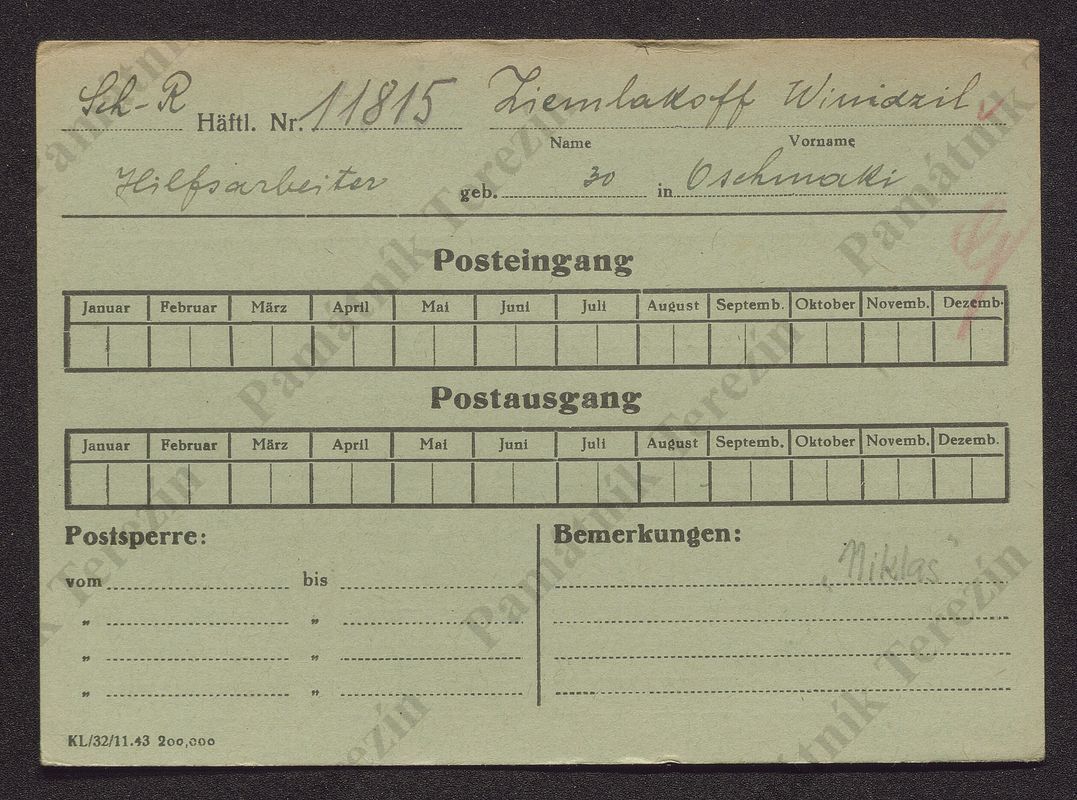 Sch-R Häftl. Nr. 11815 Ziemlakoff Winidzil
Name Vorname
Hilfsarbeiter geb. 30 in Oschmaki
Posteingang
Januar Februar März April Mai Juni Juli August Septemb. Oktober Novemb. Dezemb.
Postausgang
Januar Februar März April Mai Juni Juli August Septemb. Oktober Novemb. Dezemb.
Postsperre: Bemerkungen:
vom bis "Niklas"
" "
" "
" "
KL/32/11.43 200,000
Památník Terezín